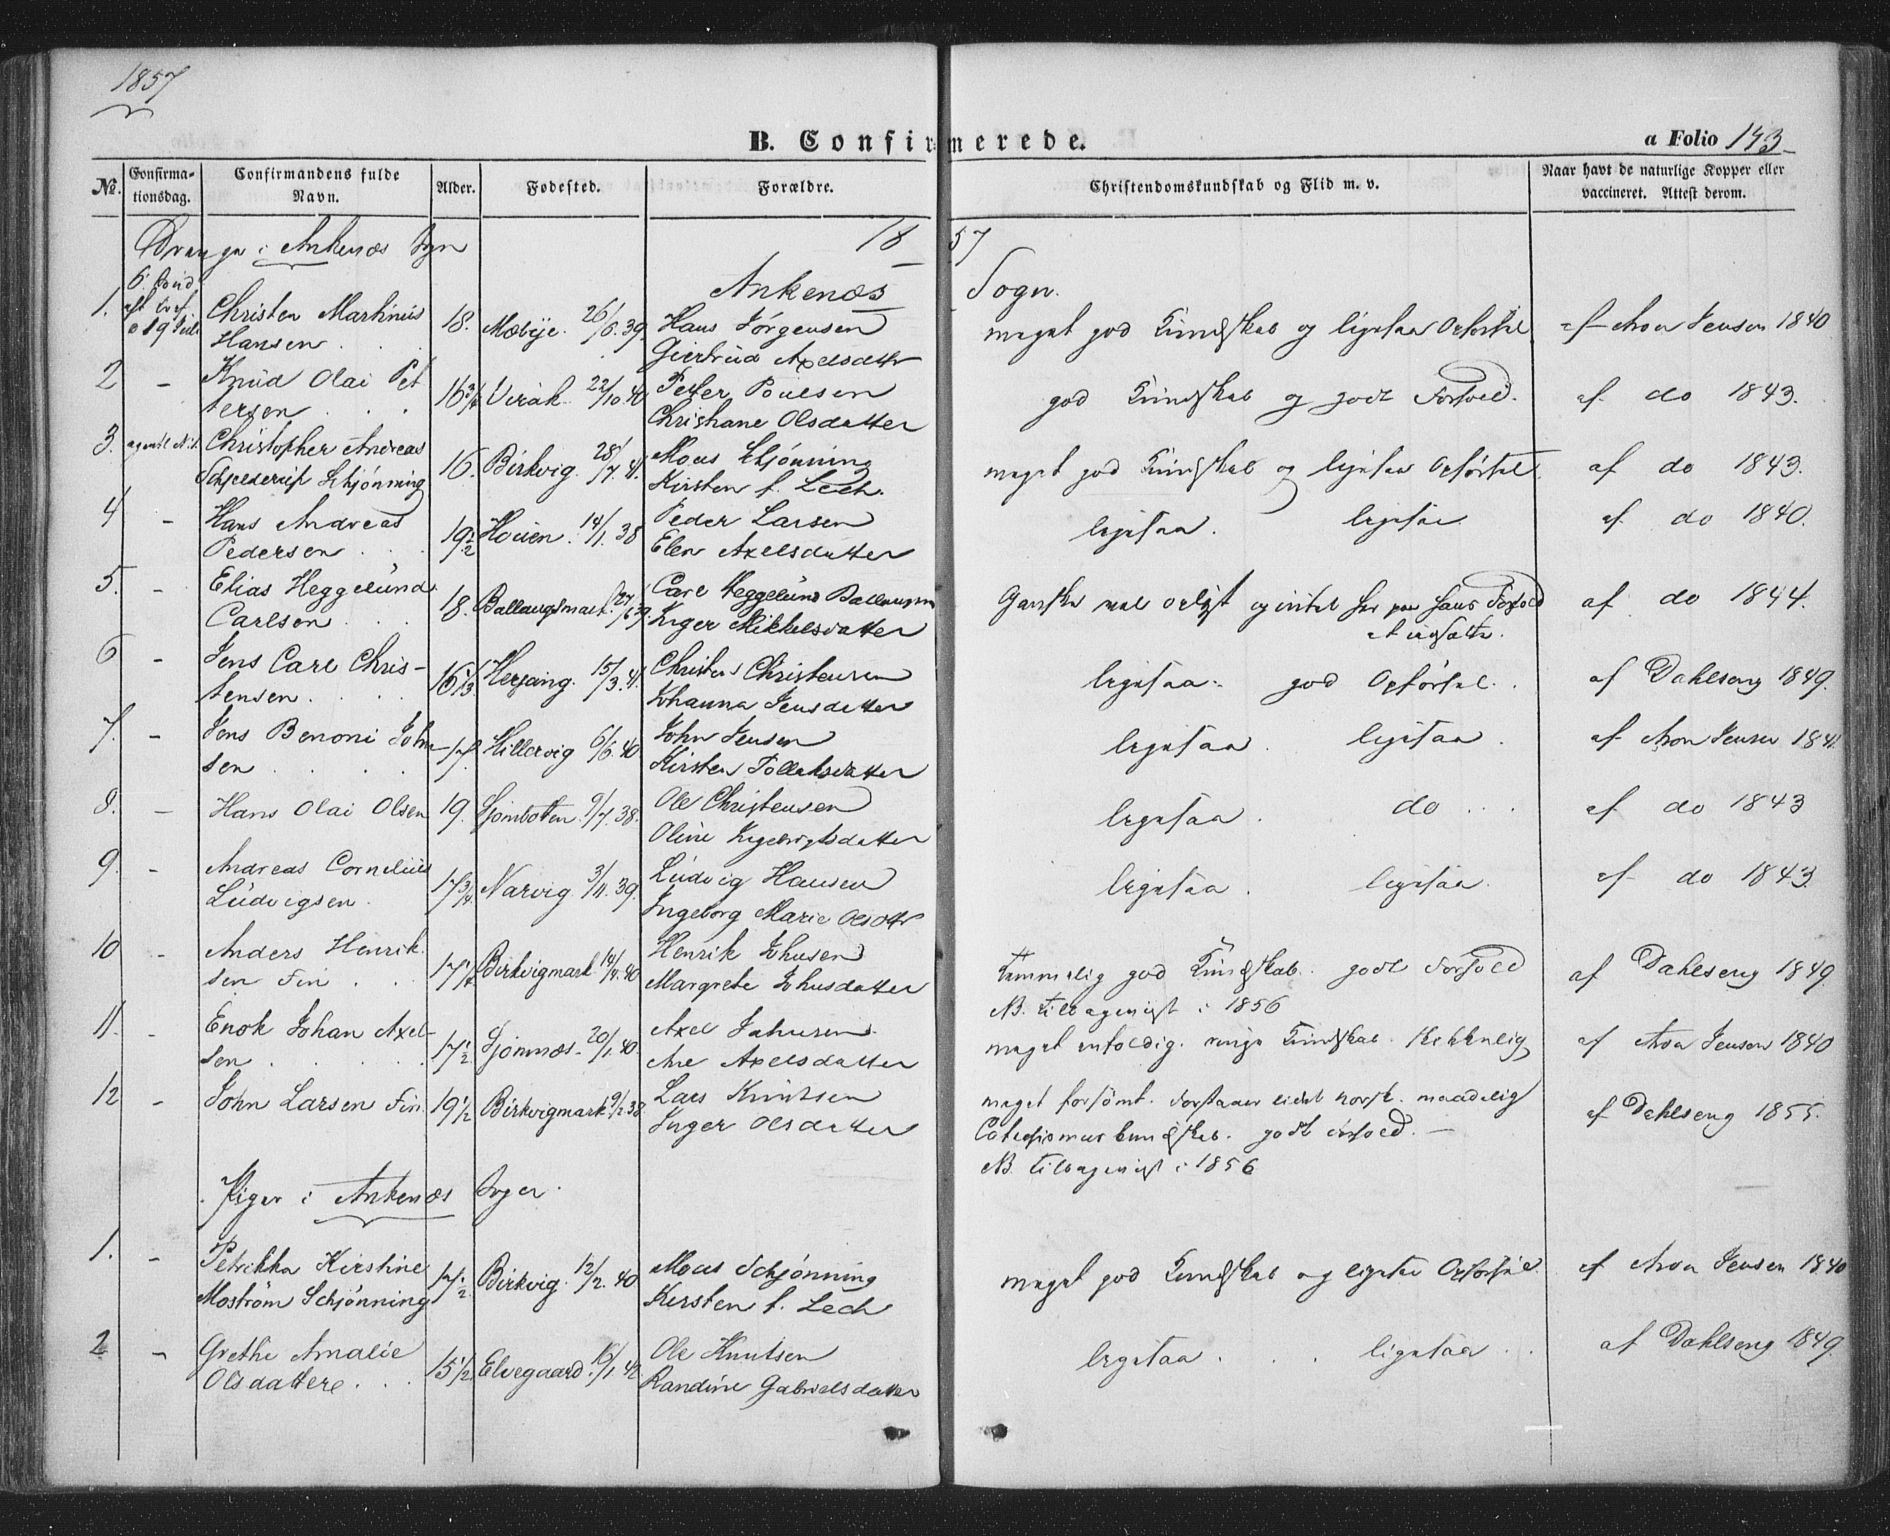 1857
B. Confirmerede.
a Folio 143
No. Confirmationsdag. Confirmandens fulde Navn. Alder. Fodested. Forældre. Christendomskundskab og Flid m. v. Naar havt de naturlige Kopper eller vaccineret. Attest derom.
Drenge i Ankenæs Sogn
1857
Ankenæs Sogn.
1. Christen Martinus 18. Mæbye. 26/6.39. Hans Jørgensen meget god Kundskab og ligesaa Opførsel af Aron Jensen 1840
Hansen . . . Giertrud Axelsdattr
2 - Knud Olai Pet 16 3/4 Virak. 22/10.40 Petter Poulsen god Kundskab og godt Forhold. af do 1843.
tersen . . . Christiane Olsdatter
3. Christopher Andreas 16. Birkvig. 28/7.41. Moses Schjønning meget god Kundskab og ligesaa Opførsel af do 1843.
Schjelderup Schjønning Kirsten f. Lech.
4 - Hans Andreas 19 1/2 Houen. 14/1.38 Peder Larsen ligesaa. ligesaa af do 1840.
Pedersen . . . Elen Axelsdatter
5. - Elias Heggelund 18. Ballangsmark. 27/6 39. Carl Heggelund Ballangen Ganske vel oplyst og intet her paa hans Forhold af do 1844.
Carlsen . . . Inger Mikkelsdatter at udsætte.
6 - Jens Carl Chris- 16 1/3 Herjang. 15/3.41. Christen Christensen ligesaa. god Opførsel. af Dahlseng 1849.
tensen . . . Johanna Jensdatter
7. - Jens Benoni John 17. Hillervig 6/6.40 John Jensen ligesaa. ligesaa. af Aron Jensen 184
sen . . . Kirsten Tollaksdatter
8. - Hans Olai Olsen 19. Sjombotten. 9/7.38. Ole Christensen ligesaa. do . . . af do 1843
Oline Ingebrigtsdatter
9. - Andreas Cornelius 17 3/4 Narvig 3/11.39. Ludvig Hansen ligesaa. ligesaa. af do 1843
Ludvigsen. Ingeborg Marie Olsdtr
10 - Anders Henrik 17 1/4 Birkvigmark 14/4.40 Henrik Johnsen temmelig god Kundskab. godt Forhold af Dahlseng 1849.
sen Fin . . . Margrete Johnsdatter NB. tilbagevist i 1856
11. - Enok Johan Axel- 17 1/2 Sjomnæs. 20/1.40. Axel Johnsen meget enfoldig. ringe Kundskab. skikkelig af Aron Jensen 1840
sen . . . Ane Axelsdatter
12 - John Larsen Fin. 19 1/2 Birkvigmark 9/2.38 Lars Knutsen meget forsømt. forstaaer lidet norsk. maadelig af Dahlseng 1855.
Inger Olsdatter Catechismuskundskab. godt Forhold. —
NB. tilbagevist i 1856
Piger i Ankenæs Sogn.
1. - Petrikka Kirstine 17 1/2 Birkvig. 12/2.40 Moses Schjønning meget god Kundskab og ligesaa Opførsel. af Aron Jensen 1840
Moström Schjønning Kirsten f. Lech
2 - Grethe Amalie 15 1/2 Elvegaard. 16/1.42 Ole Knutsen ligesaa . . . ligesaa . . af Dahlseng 1849.
Olsdattere . . . Randine Gabrielsdatter